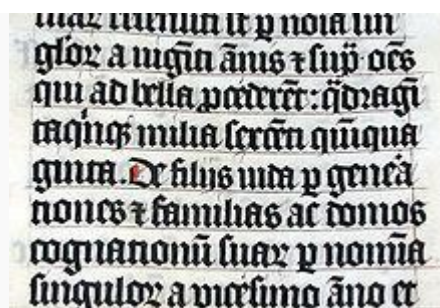 suaꝝ recensiti sūt ꝑ noīa sin
gloꝝ a uigīti ānis ⁊ sup̄· om̄s
qui ad bella ꝓcederēt: q̄dragī
taqīqꝫ milia sexcēti quīqua
ginta. De filijs iuda ꝑ genea
tiones ⁊ familias ac domos
cognationū suaꝝ ꝑ nomīa
singuloꝝ a vicesimo āno et